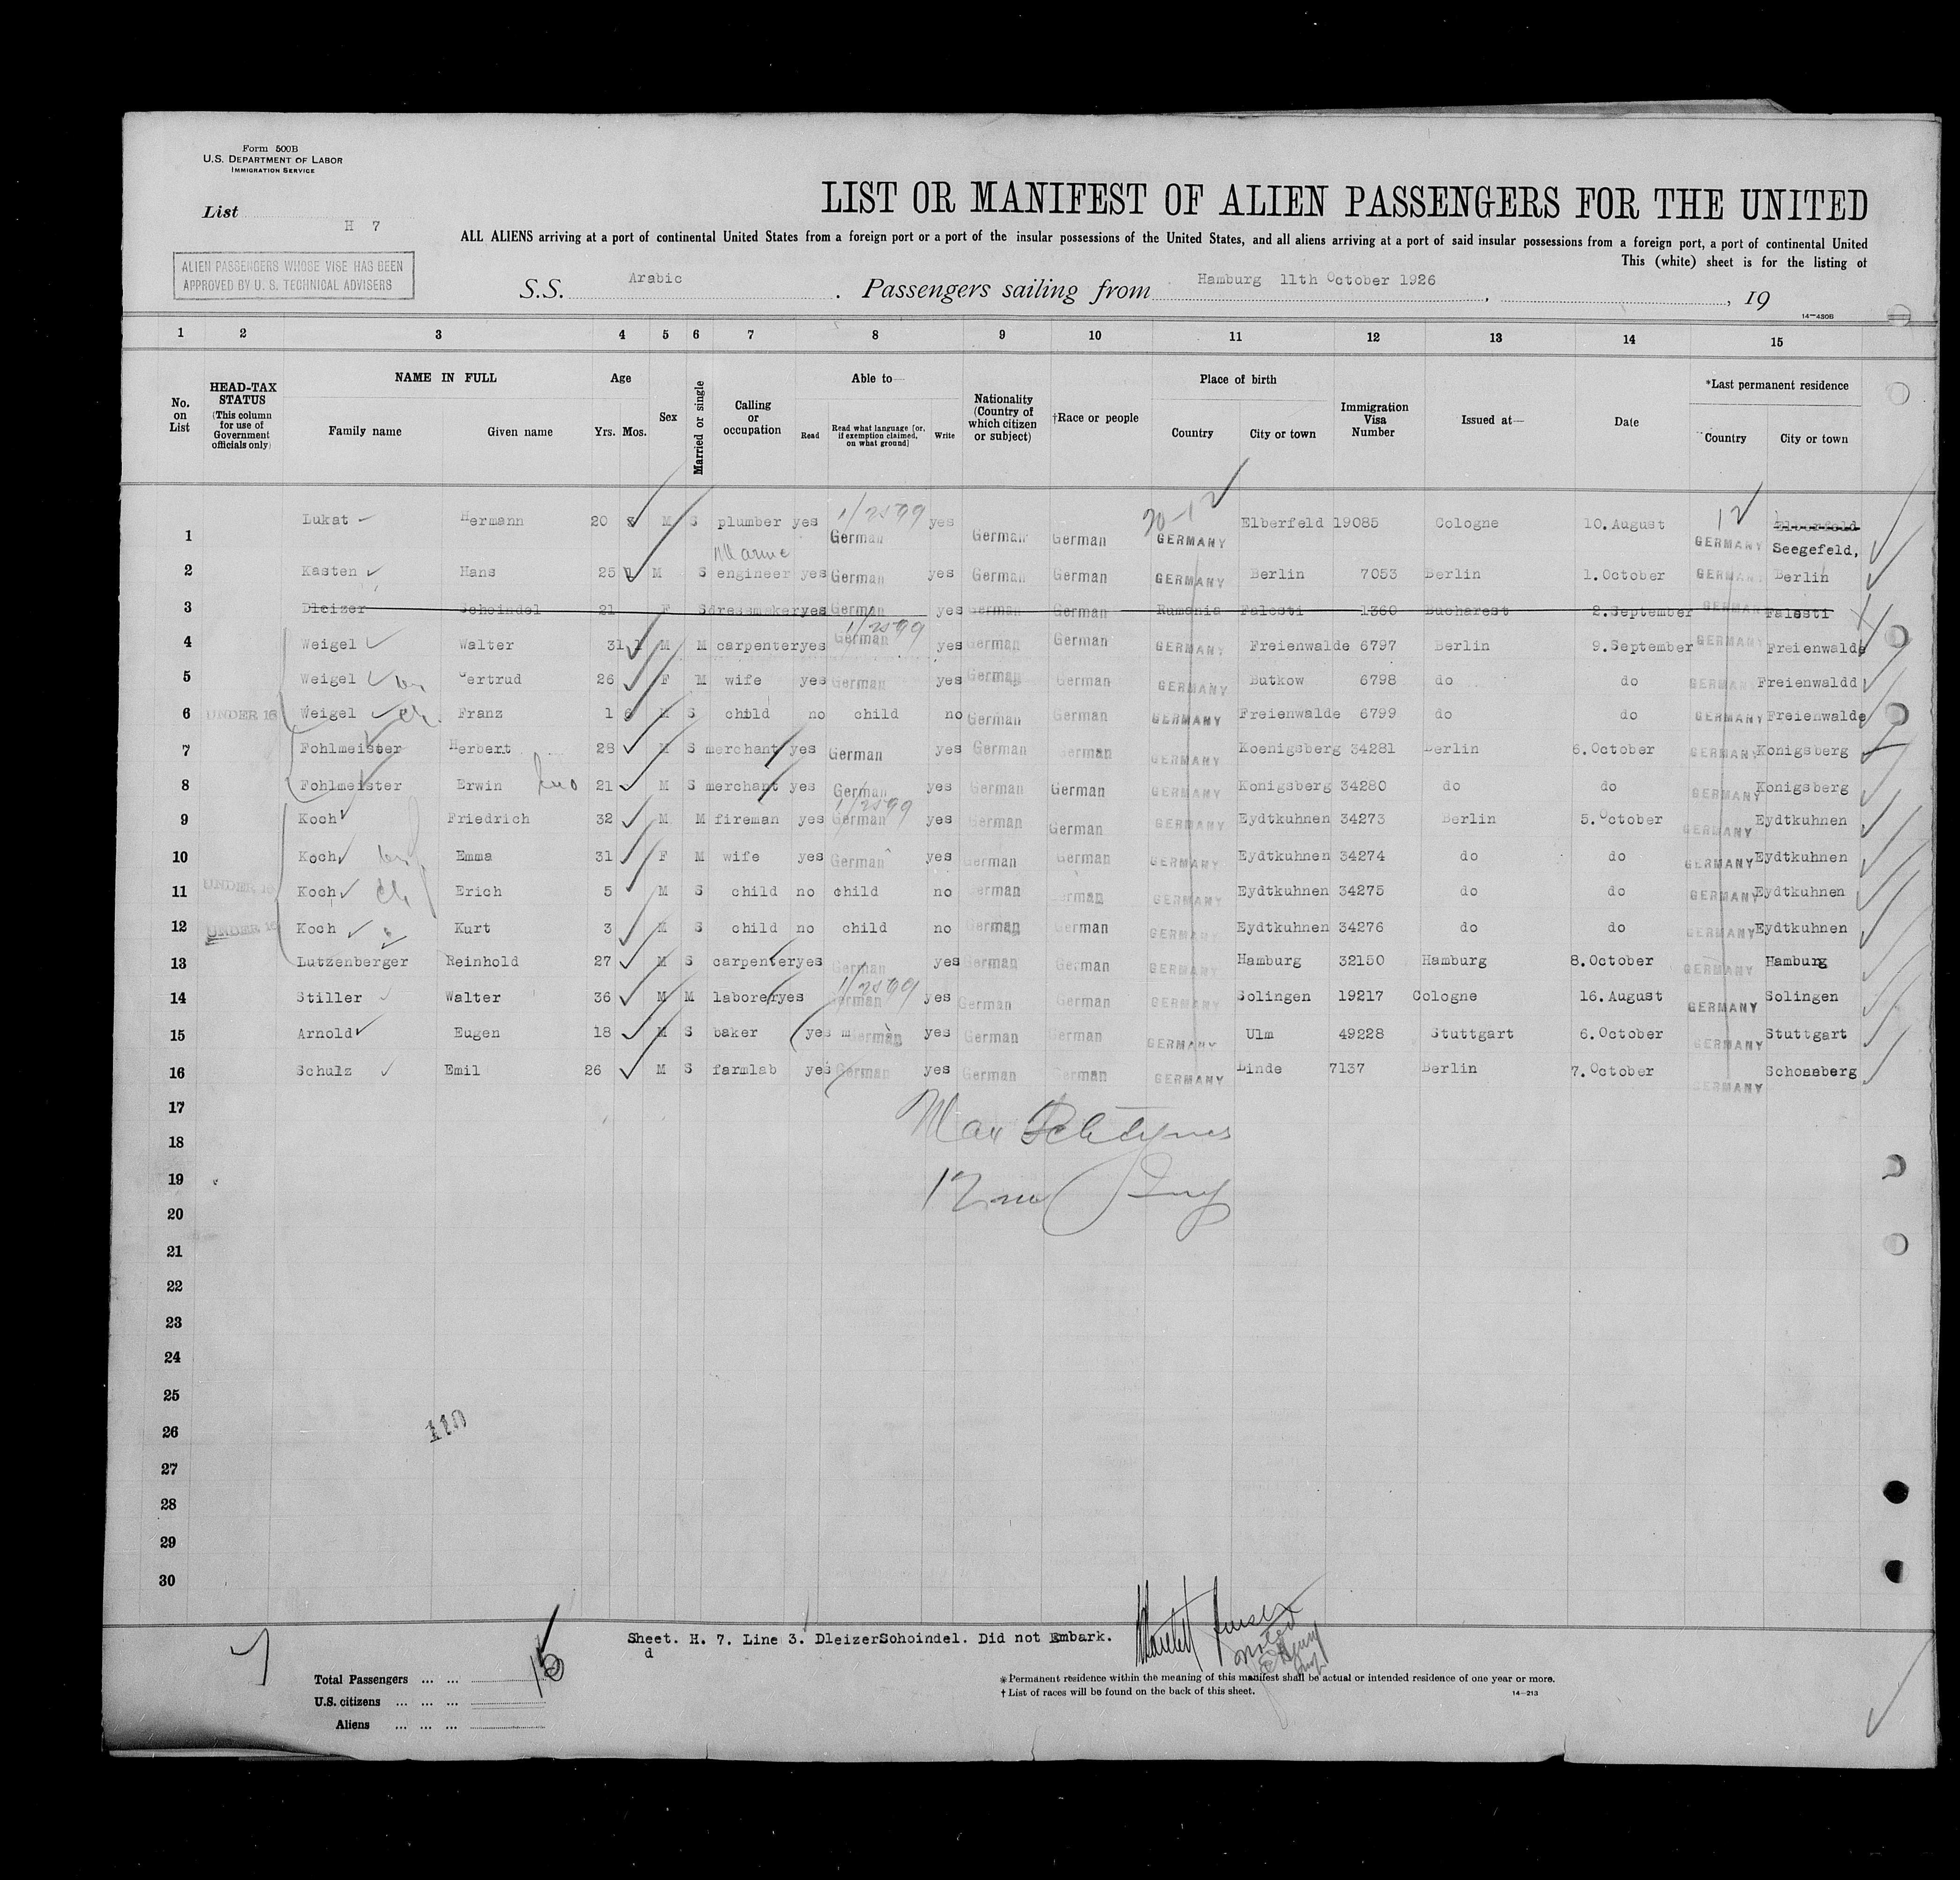 Form 500B
U.S. DEPARTMENT OF LABOR
IMMIGRATION SERVICE
List H 7
LIST OR MANIFEST OF ALIEN PASSENGERS FOR THE UNITED
ALL ALIENS arriving at a port of continental United States from a foreign port or a port of the insular possessions of the United States, and all aliens arriving at a port of said insular possessions from a foreign port, a port of continental United
This (white) sheet is for the listing of
ALIEN PASSENGERS WHOSE VISE HAS BEEN
APPROVED BY U. S. TECHNICAL ADVISERS
S.S. Arabic . Passengers sailing from Hamburg 11th October 1926 , , 19
14—430B
1 2 3 4 5 6 7 8 9 10 11 12 13 14 15
No. on List
HEAD-TAX STATUS (This column for use of Government officials only)
NAME IN FULL
Family name Given name
Age
Yrs. Mos.
Sex
Married or single
Calling or occupation
Able to—
Read Read what language [or, if exemption claimed, on what ground] Write
Nationality (Country of which citizen or subject)
†Race or people
Place of birth
Country City or town
Immigration Visa Number
Issued at—
Date
*Last permanent residence
Country City or town
20-12 12
1/2599
1 Lukat Hermann 20 8 M S plumber yes German yes German German GERMANY Elberfeld 19085 Cologne 10. August GERMANY Elberfeld Seegefeld,
Marine
2 Kasten Hans 25 1 M S engineer yes German yes German German GERMANY Berlin 7053 Berlin 1. October GERMANY Berlin
3 Dleizer Schoindel 21 F S dressmaker yes German yes German German Rumania Falesti 1360 Bucharest 2. September GERMANY Falesti
1/2599
4 Weigel Walter 31 1 M M carpenter yes German yes German German GERMANY Freienwalde 6797 Berlin 9. September GERMANY Freienwalde
5 Weigel Gertrud 26 F M wife yes German yes German German GERMANY Butkow 6798 do do GERMANY Freienwaldd
6 UNDER 16 Weigel ch. Franz 1 6 M S child no child no German German GERMANY Freienwalde 6799 do do GERMANY Freienwalde
7 Fohlmeister Herbert 28 M S merchant yes German yes German German GERMANY Koenigsberg 34281 Berlin 6. October GERMANY Konigsberg
8 Fohlmeister Erwin 21 M S merchant yes German yes German German GERMANY Konigsberg 34280 do do GERMANY Konigsberg
1/2599
9 Koch Friedrich 32 M M fireman yes German yes German German GERMANY Eydtkuhnen 34273 Berlin 5. October GERMANY Eydtkuhnen
10 Koch Emma 31 F M wife yes German yes German German GERMANY Eydtkuhnen 34274 do do GERMANY Eydtkuhnen
11 UNDER 16 Koch ch Erich 5 M S child no child no German German GERMANY Eydtkuhnen 34275 do do GERMANY Eydtkuhnen
12 UNDER 16 Koch Kurt 3 M S child no child no German German GERMANY Eydtkuhnen 34276 do do GERMANY Eydtkuhnen
13 Lutzenberger Reinhold 27 M S carpenter yes German yes German German GERMANY Hamburg 32150 Hamburg 8. October GERMANY Hamburg
1/2599
14 Stiller Walter 36 M M laborer yes German yes German German GERMANY Solingen 19217 Cologne 16. August GERMANY Solingen
15 Arnold Eugen 18 M S baker yes German yes German German GERMANY Ulm 49228 Stuttgart 6. October GERMANY Stuttgart
16 Schulz Emil 26 M S farmlab yes German yes German German GERMANY Linde 7137 Berlin 7. October GERMANY Schossberg
17
18
19
20
21
22
23
24
25
26
27
28
29
30
110
Sheet. H. 7. Line 3. DleizerSchoindel. Did not Embark.
d
Total Passengers ... ...
U.S. citizens ... ... ...
Aliens ... ... ...
15
*Permanent residence within the meaning of this manifest shall be actual or intended residence of one year or more.
† List of races will be found on the back of this sheet.
14—213